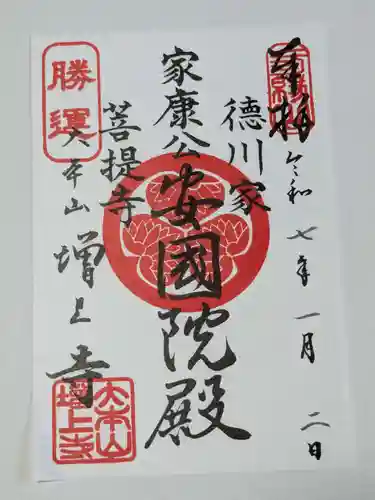 奉拝
令和七年一月二日
徳川家
家康公
安國院殿
菩提寺
勝運
大本山
増上寺
大本山
増上寺